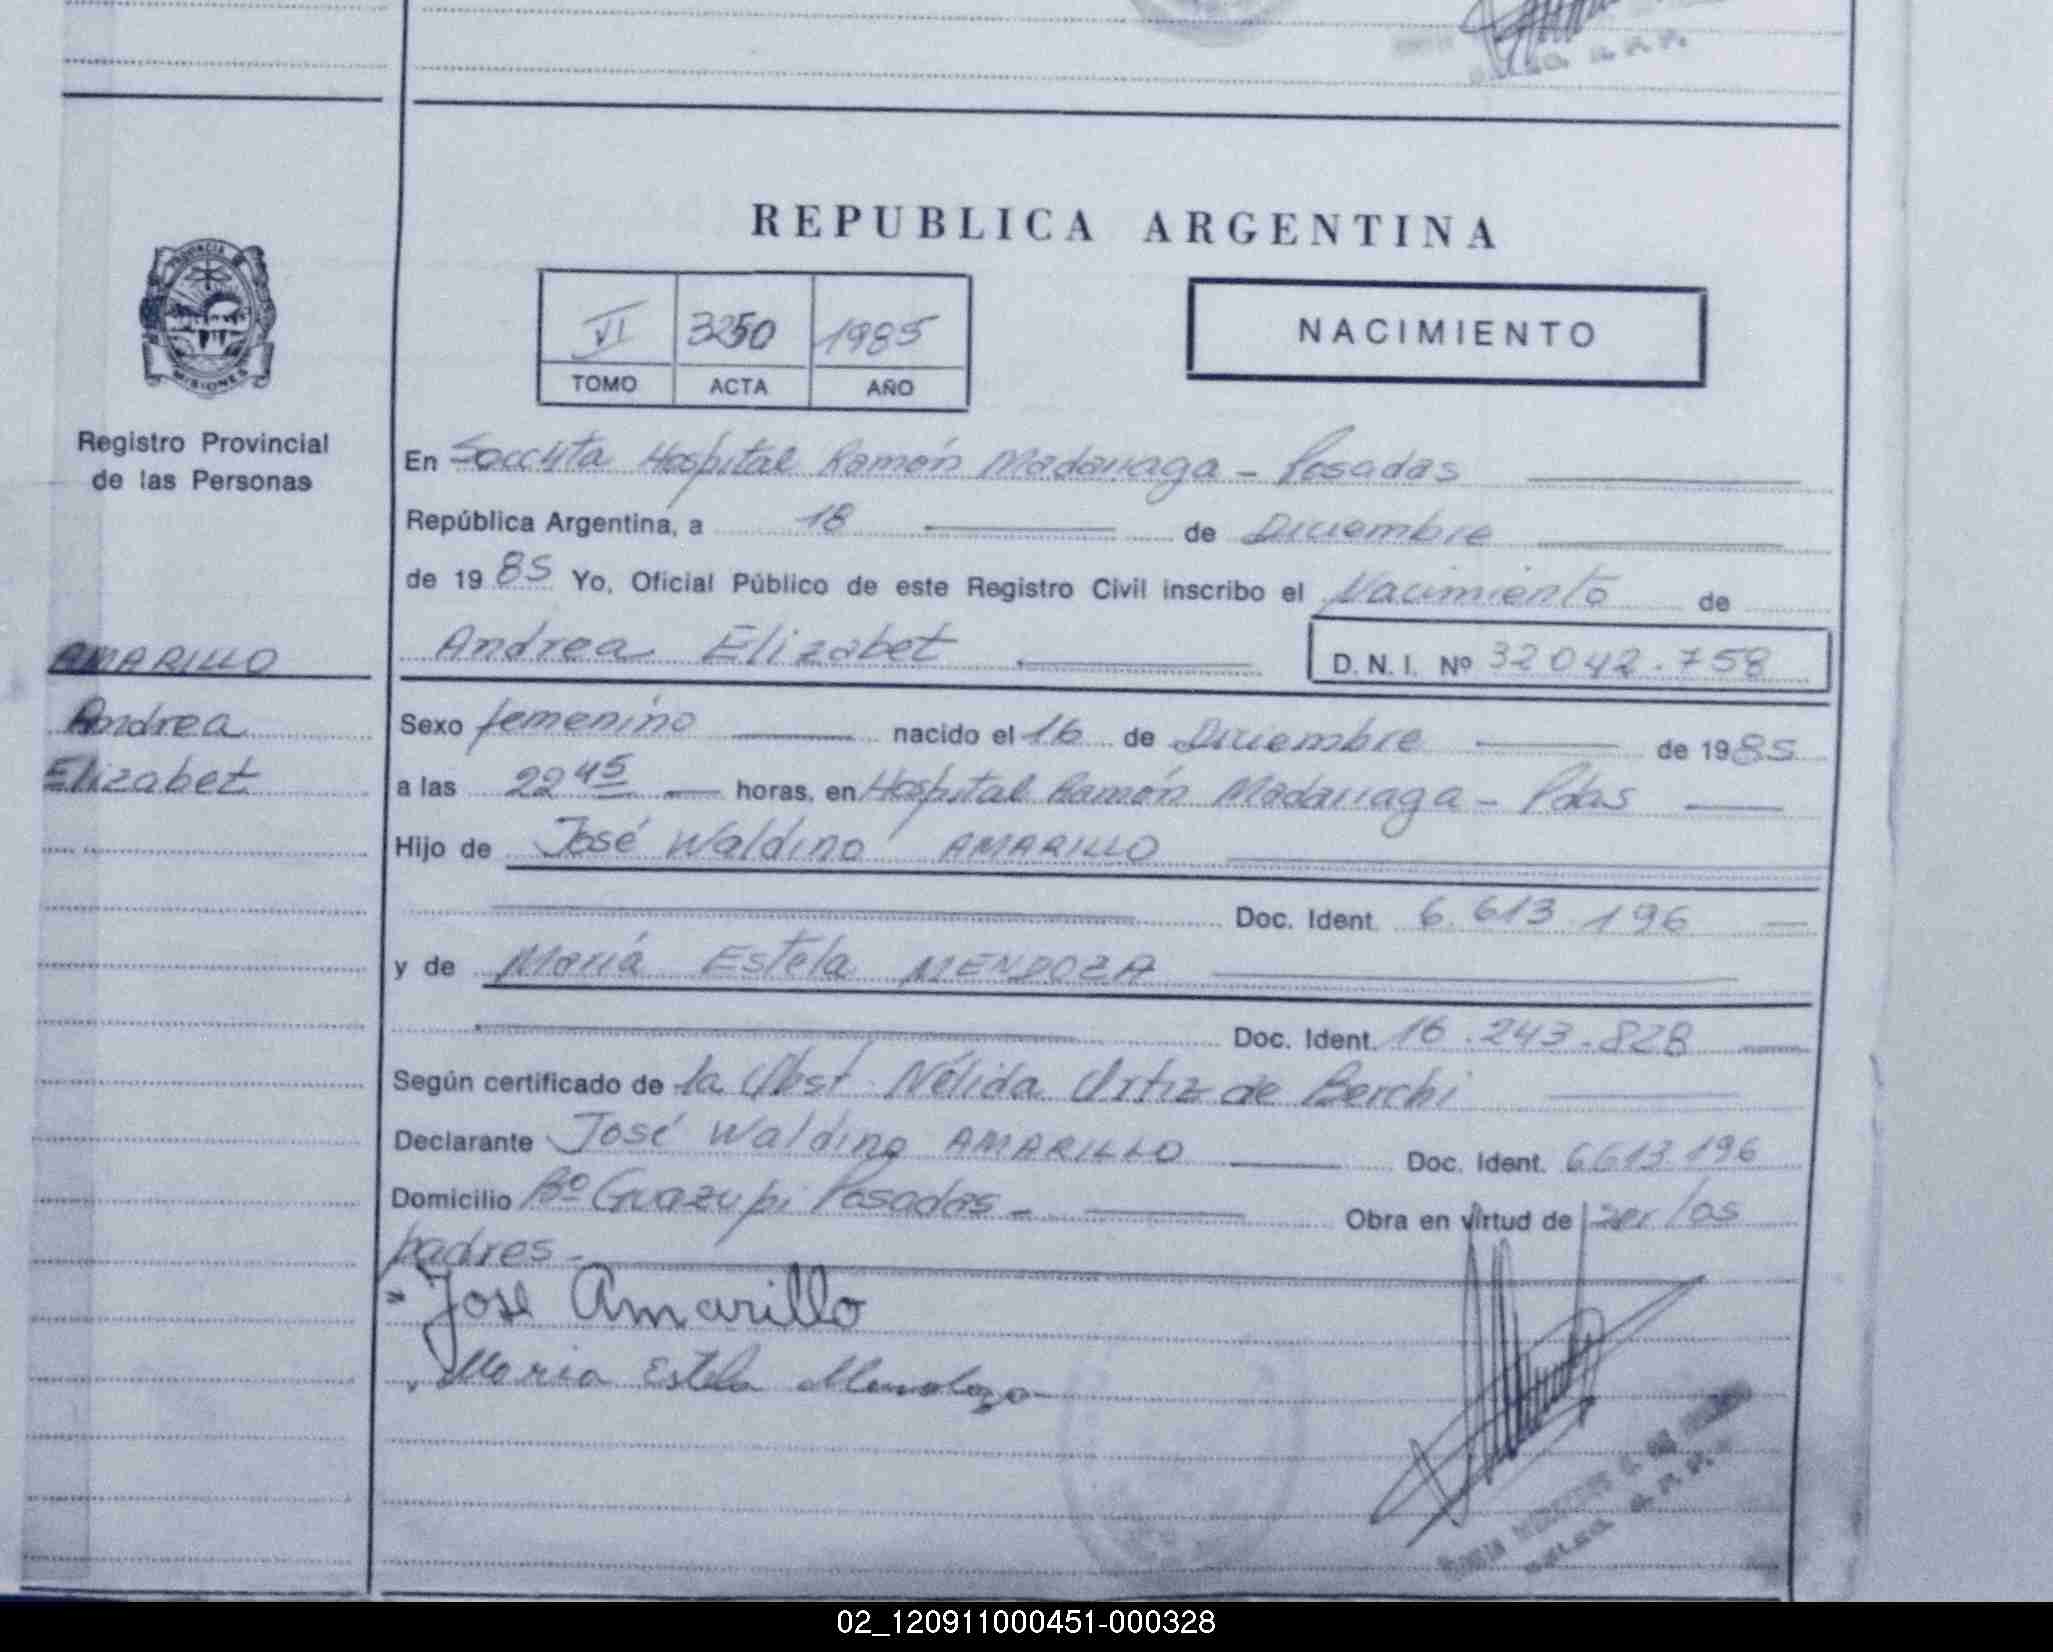 REPUBLICA ARGENTINA
PROVINCIA DE
MISIONES
VI 3250 1985
TOMO ACTA AÑO
NACIMIENTO
Registro Provincial
de las Personas
En Hospital Ramón Madariaga - Posadas
República Argentina, a 18 de Diciembre
de 1985 Yo, Oficial Público de este Registro Civil inscribo el Nacimiento de
AMARILLO
Andrea Elizabet D. N. I. Nº 32042.758
Andrea
Elizabet
Sexo femenino nacido el 16 de Diciembre de 1985
a las 22 45 horas, en Hospital Ramón Madariaga - Pdas
Hijo de José Waldino AMARILLO
Doc. Ident. 6.613.196
y de María Estela MENDOZA
Doc. Ident. 16.243.828
Según certificado de la Obst. Nélida Ortiz de Berchi
Declarante José Waldino AMARILLO Doc. Ident. 6613.196
Domicilio Bº Guazupi Posadas - Obra en virtud de ser los
padres -
José Amarillo
Maria Estela Mendoza
02_120911000451-000328